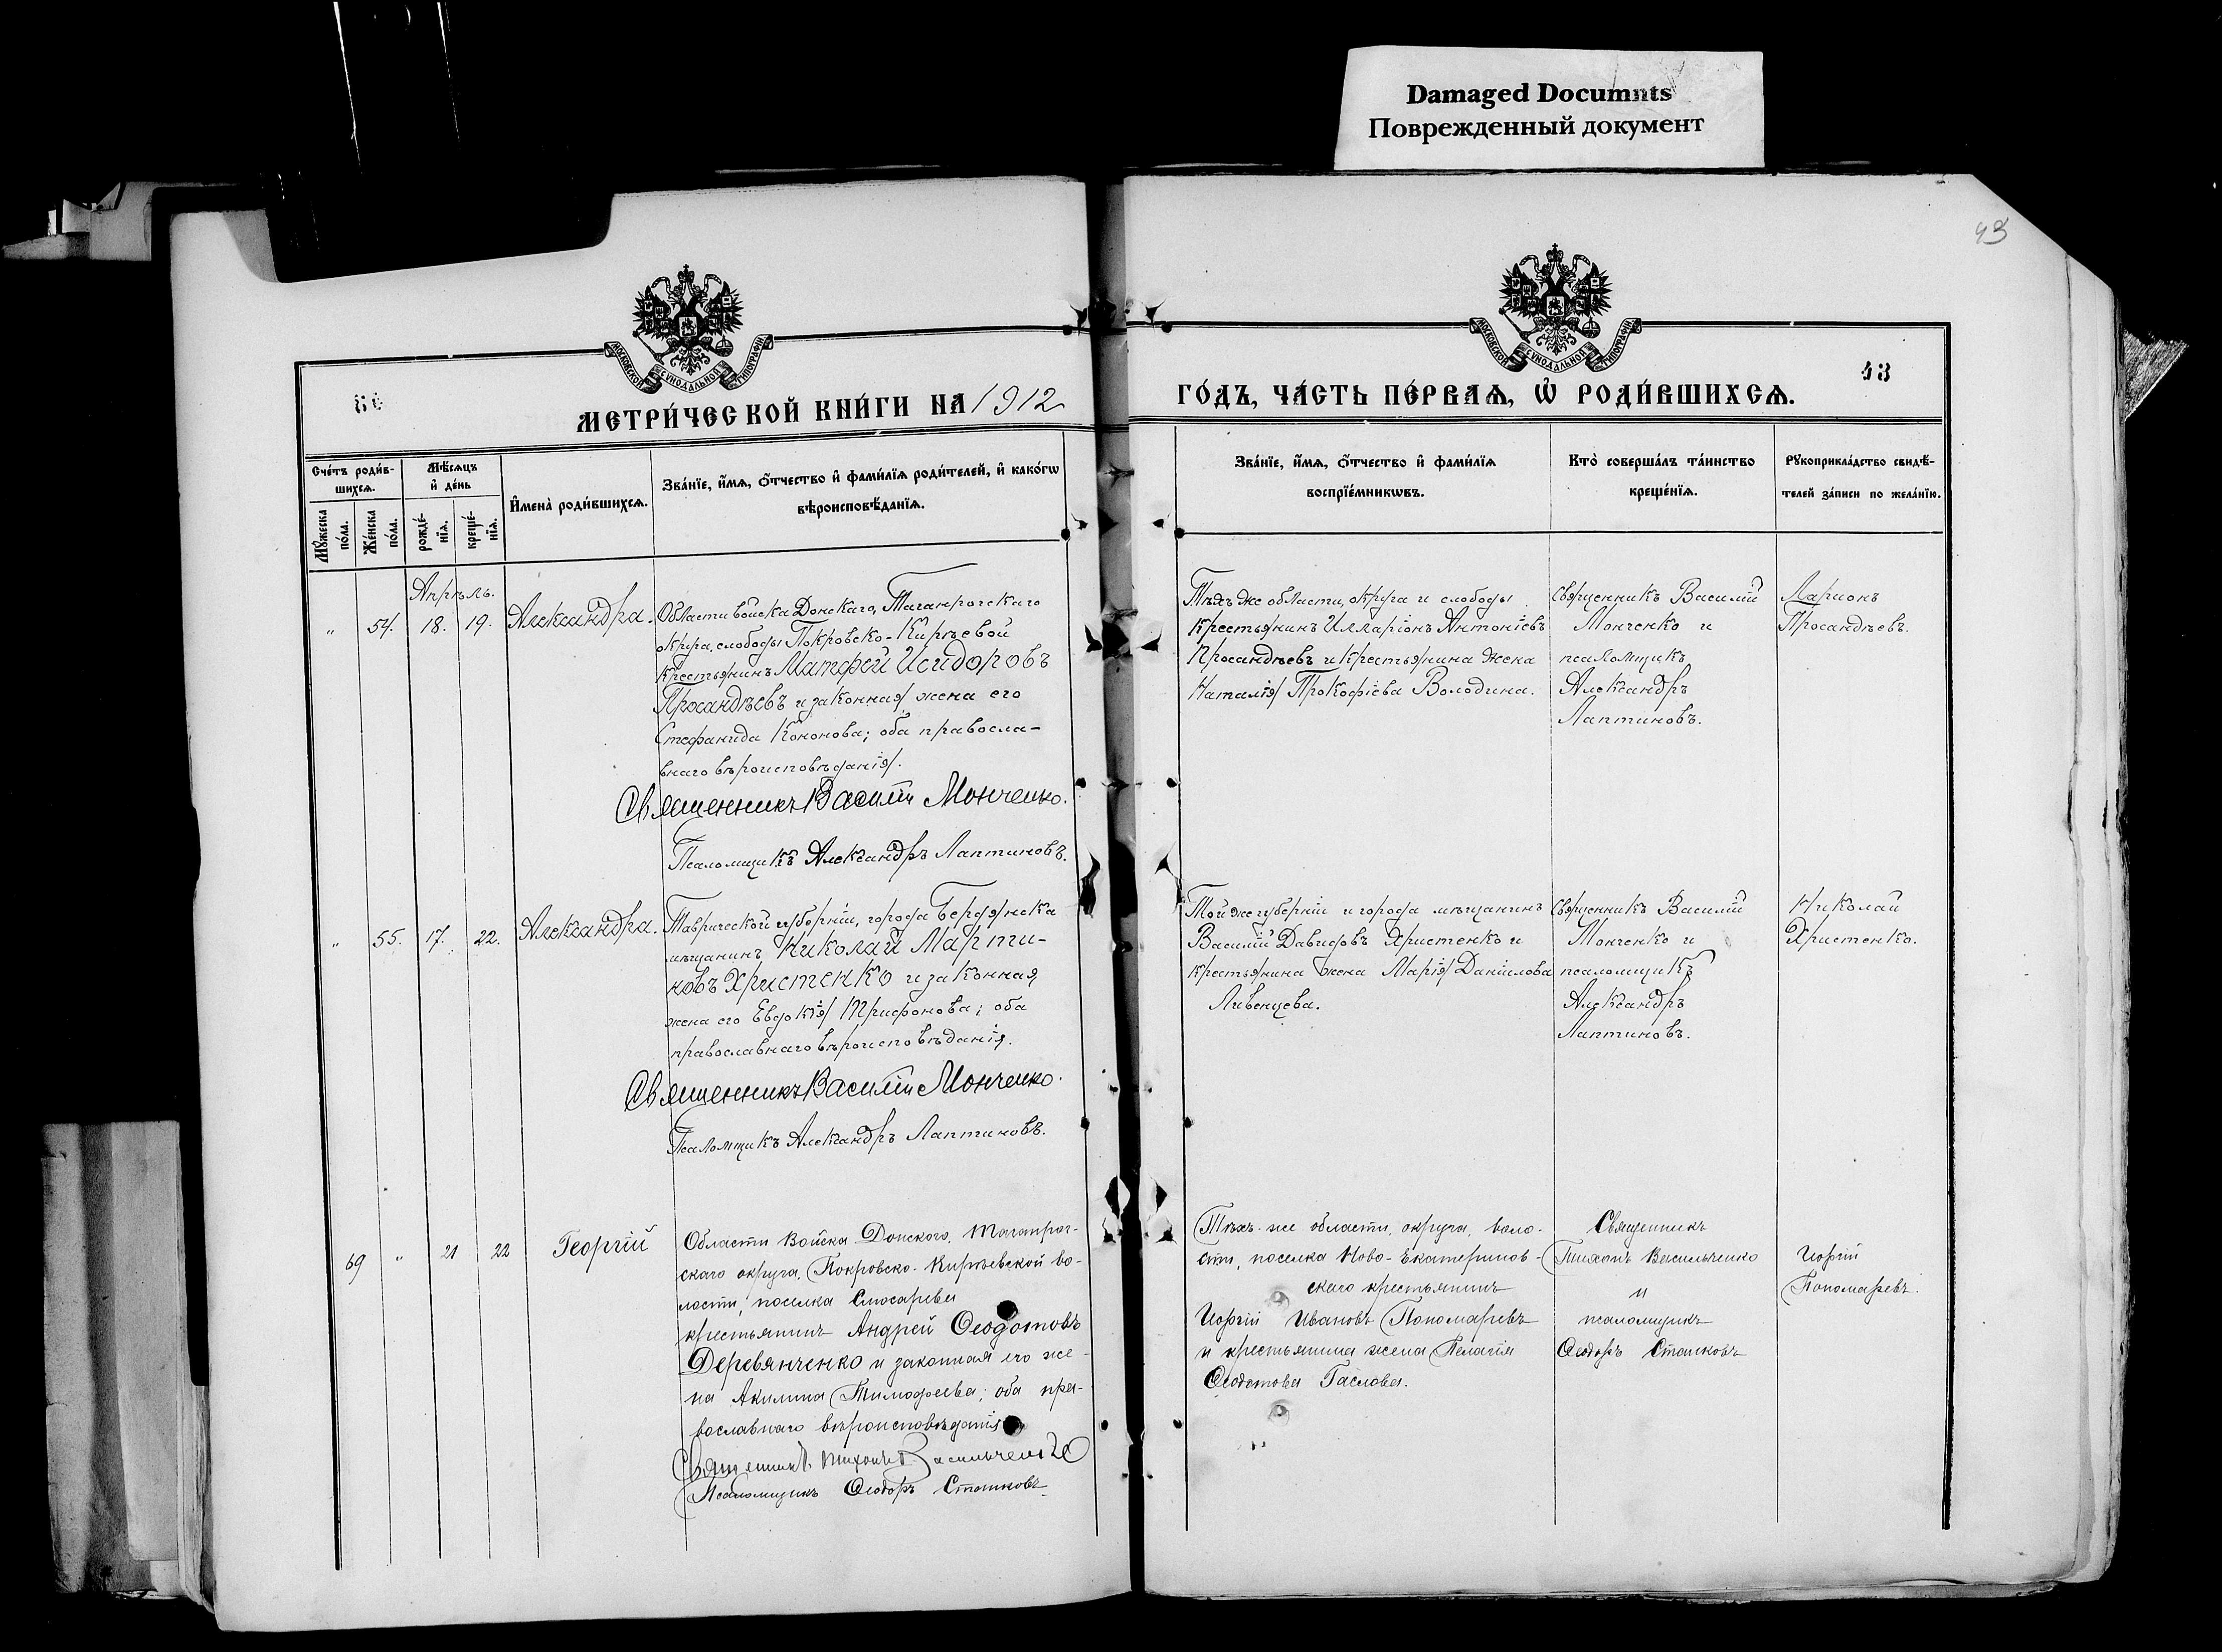 Damaged Documnts
Поврежденный документ
43
МОСКОВСКОЙ СѴНОДАЛЬНОЙ ТИПОГРАФІИ
МОСКОВСКОЙ СѴНОДАЛЬНОЙ ТИПОГРАФІИ
43
МЕТРИ́ЧЕСКОЙ КНИ́ГИ НА 1912
ГО́ДЪ, ЧА́СТЬ ПЕ́РВАѦ, Ѡ҆ РОДИ́ВШИХСѦ.
Сче́тъ роди́в-
шихсѧ.
Мꙋ́жеска по́ла.
Же́нска по́ла.
Мѣ́сѧцъ
и҆ де́нь
рожде́-нїѧ.
креще́-нїѧ.
И҆мена̀ роди́вшихсѧ.
Зва́нїе, и҆́мѧ, ѻ҆́тчество и҆ фами́лїѧ роди́телей, и҆ како́гѡ
вѣроисповѣ́данїѧ.
Зва́нїе, и҆́мѧ, ѻ҆́тчество и҆ фами́лїѧ
воспрїе́мникѡвъ.
Кто̀ соверша́лъ та́инство
креще́нїѧ.
Рꙋкоприкла́дство свидѣ́-
телей за́писи по жела́нїю.
Апрѣль.
„ 54. 18. 19. Александра.
Области войска Донскаго, Таганрогскаго
округа, слободы Покровско-Кирѣевой
крестьянинъ Матфей Исидоровъ
Просандѣевъ и законная жена его
Стефанида Кононова; оба правосла-
внаго вѣроисповѣданія.
Священникъ Василій Монченко.
Псаломщикъ Александръ Лаптиновъ.
Тѣхъ же области, округа и слободы
крестьянинъ Илларіонъ Антоніевъ
Просандѣевъ и крестьянина жена
Наталія Прокофіева Володина.
Священникъ Василій
Монченко и
псаломщикъ
Александръ
Лаптиновъ.
Ларионъ
Просандѣевъ.
„ 55. 17. 22. Александра.
Таврической губерніи, города Бердянска
мѣщанинъ Николай Марти-
новъ Христенко и законная
жена его Евдокія Трифонова; оба
православнаго вѣроисповѣданія.
Священникъ Василій Монченко.
Псаломщикъ Александръ Лаптиновъ.
Той же губерніи и города мѣщанинъ
Василій Давидовъ Христенко и
крестьянина жена Марія Даніилова
Ливенцева.
Священникъ Василій
Монченко и
псаломщикъ
Александръ
Лаптиновъ.
Николай
Христенко.
69 „ 21 22 Георгій
Области Войска Донского, Таганрог-
скаго округа, Покровско-Кирѣевской во-
лости, поселка Слюсарева
крестьянинъ Андрей Ѳеодотовъ
Деревянченко и законная его же-
на Акилина Тимофеева; оба пра-
вославнаго вѣроисповѣданія
Священникъ Тихонъ Васильченко
Псаломщикъ Ѳеодоръ Сташковъ
Тѣхъ-же области, округа, воло-
сти, поселка Ново-Екатеринов-
скаго крестьянинъ
Иоргій Ивановъ Пономаревъ
и крестьянина жена Пелагія
Ѳеодотова Гаслова.
Священникъ
Тихонъ Васильченко
и
псаломщикъ
Ѳеодоръ Сташковъ
Иоргій
Пономаревъ.